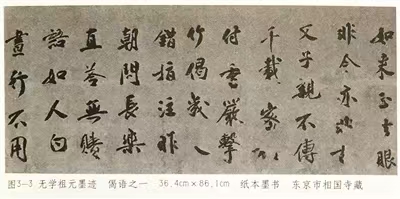 如来正法眼
非今亦非古
父子親不傳
千載密相
付香嚴擊
竹偈
錯指注昨
朝問長樂
直答無賸
語如人白
晝行不用
图3-3 无学祖元墨迹 偈语之一 36.4cm×86.1cm 纸本墨书 东京市相国寺藏